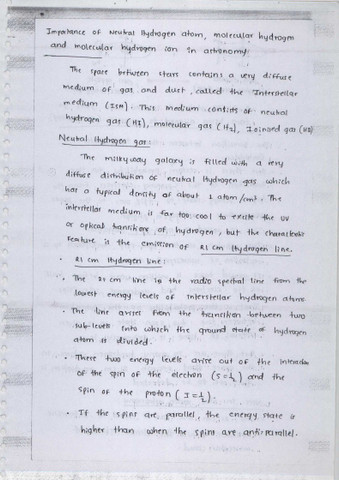 Importance of Neutral Hydrogen atom, molecular hydrogen
and molecular hydrogen ion in astronomy
The space between stars contains a very diffuse
medium of gas and dust, called the Interstellar
medium (ISM). This medium consists of neutral
hydrogen gas (HI), molecular gas (H2), Ionized gas (HII)
Neutral Hydrogen gas:
The milkyway galaxy is filled with a very
diffuse distribution of neutral Hydrogen gas which
has a typical density of about 1 atom/cm³. The
interstellar medium is far too cool to excite the UV
or optical transitions of hydrogen, but the characteristic
feature is the emission of 21 cm Hydrogen line.
• 21 cm Hydrogen line:
• The 21 cm line is the radio spectral line from the
lowest energy levels of interstellar hydrogen atoms
• The line arises from the transition between two
sub-levels into which the ground state of hydrogen
atom is divided.
• These two energy levels arise out of the interaction
of the spin of the electron (s=½) and the
spin of the proton (I=½).
• If the spins are parallel, the energy state is
higher than when the spins are antiparallel.